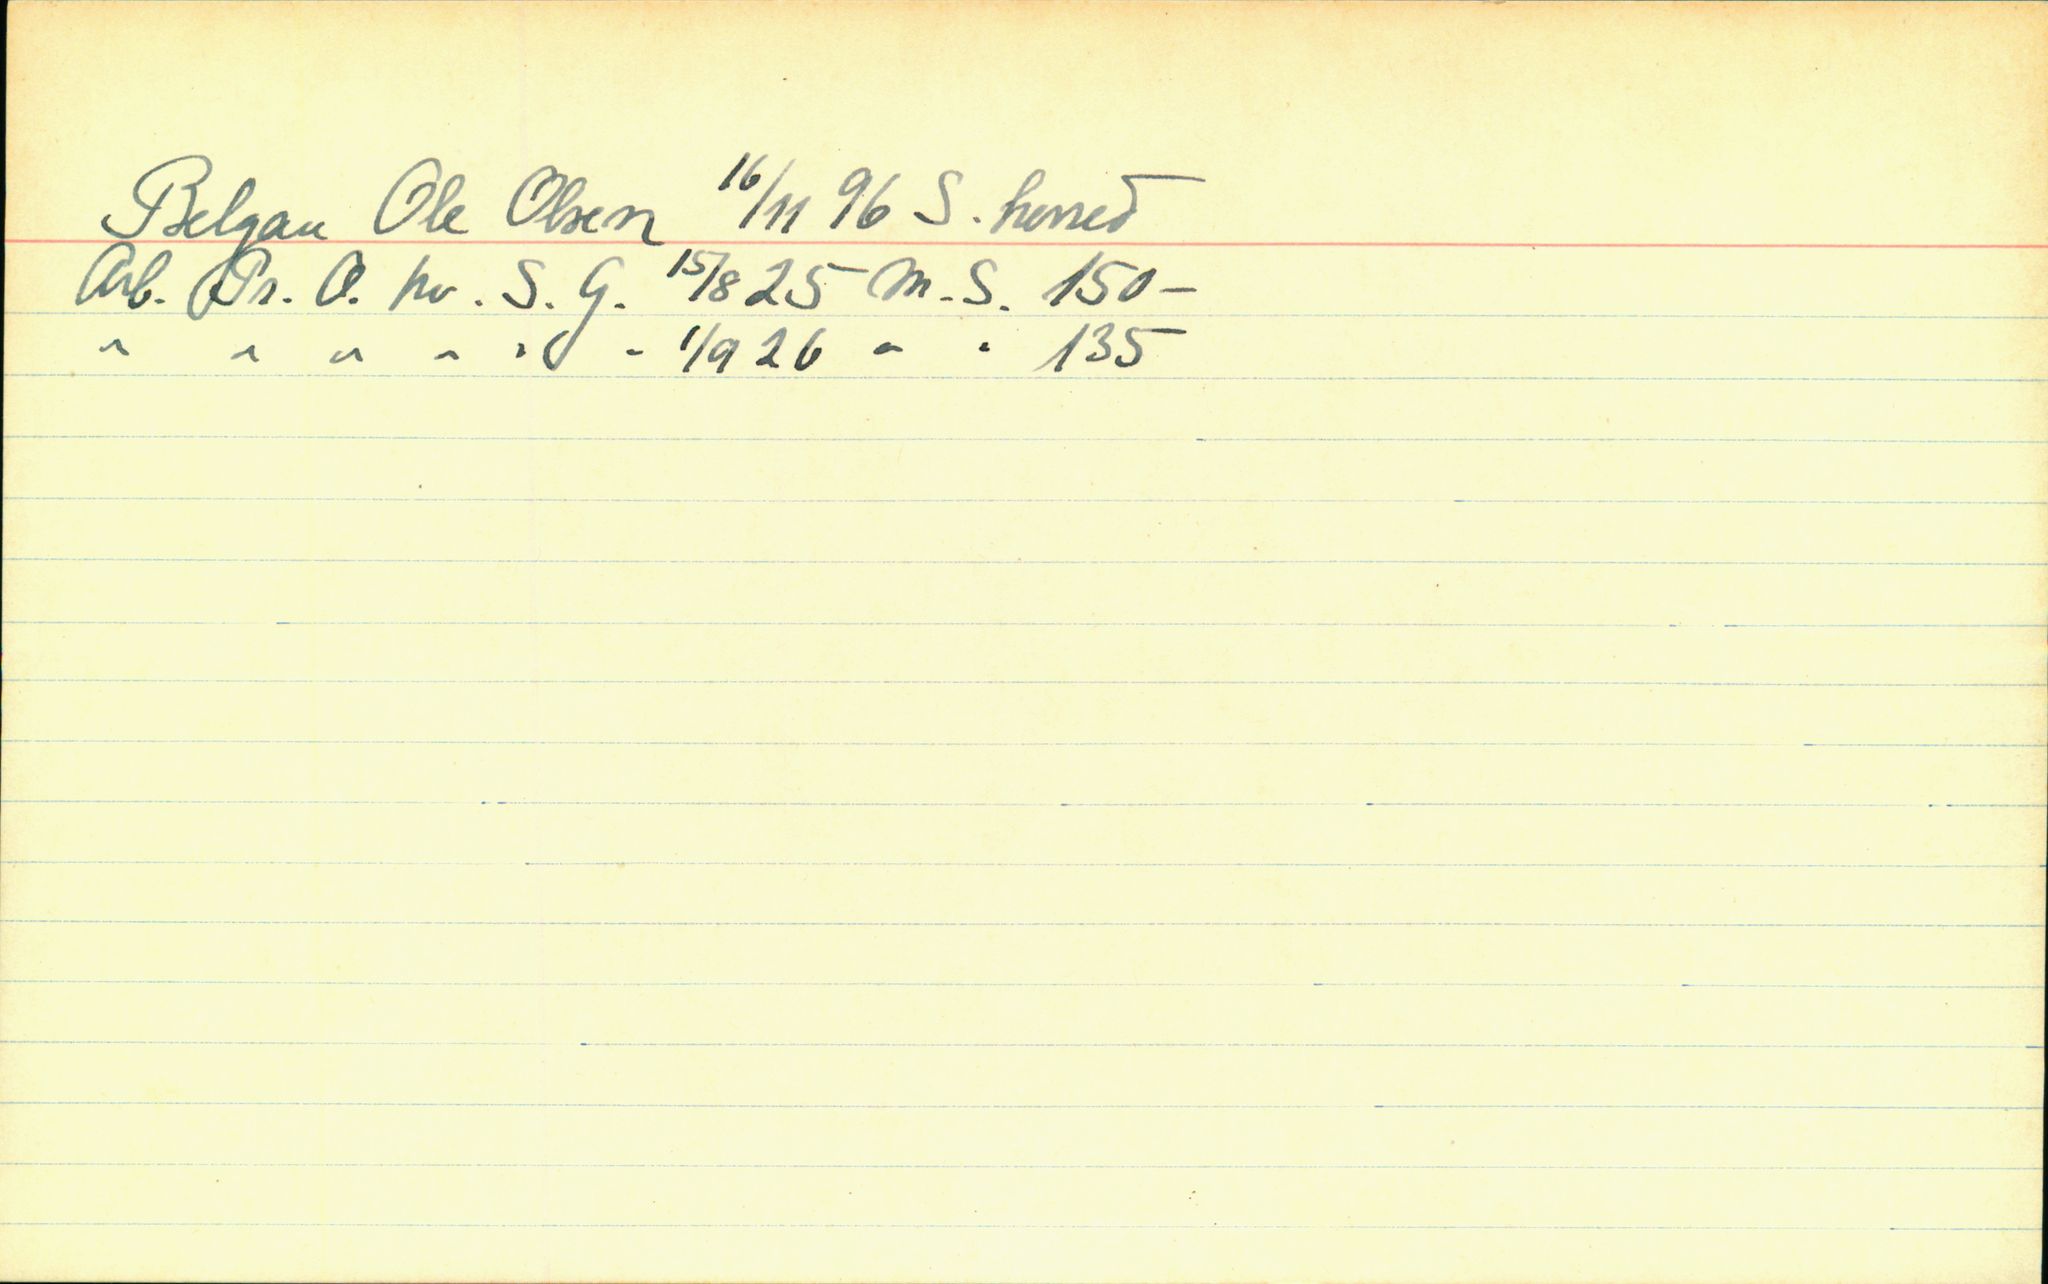 Belgau Ole Olsen 16/11 96 S. herred
Arb. Pr. O. hv. S. G. 15/8 25 M. S. 150 –
" " " " " " 1/9 26 " " 135